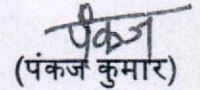 पंकज
(पंकज कुमार)